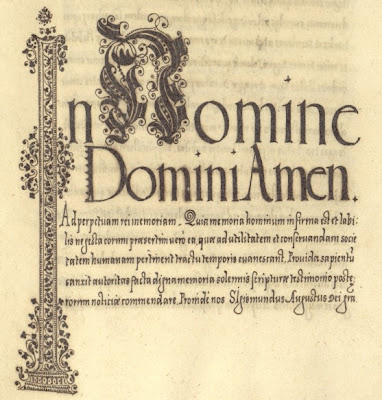 In Nomine
Domini Amen.
Ad perpetuam rei memoriam. Quia memoria hominum infirma est et labi-
lis ne gesta eorum præsertim vero ea, quæ ad utilitatem et conservandam socie
tatem humanam pertinent tractu temporis evanescant, Provida sapientū
sanxit autoritas facta digna memoria solemnis scripturæ testimonio poste-
rorum noticiæ commendare, Proinde nos Sigismundus Augustus Dei gra